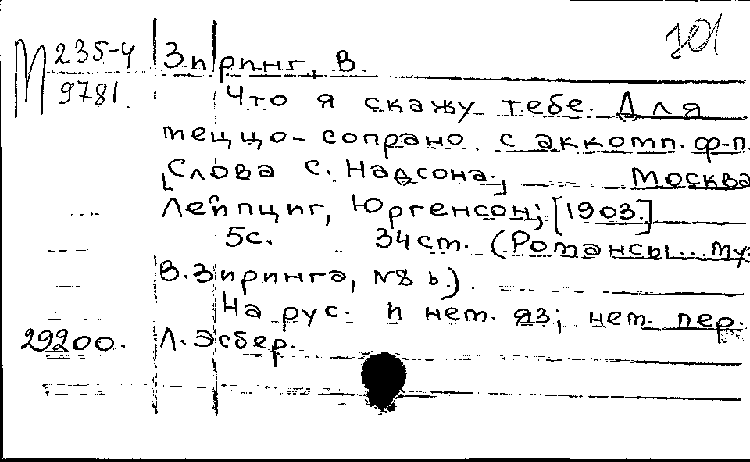 М 235-4 Зиринг, В. 101
9781. Что я скажу тебе. Для
меццо-сопрано с аккомп. ф-п.
[Слова С. Надсона.] Москва
Лейпциг, Юргенсон; [1903.]
5с. 34 ст. (Романсы... му
В. Зиринга, №8 b.)
На рус. и нем. яз; нем. пер.
29200. Л. Эсбер.